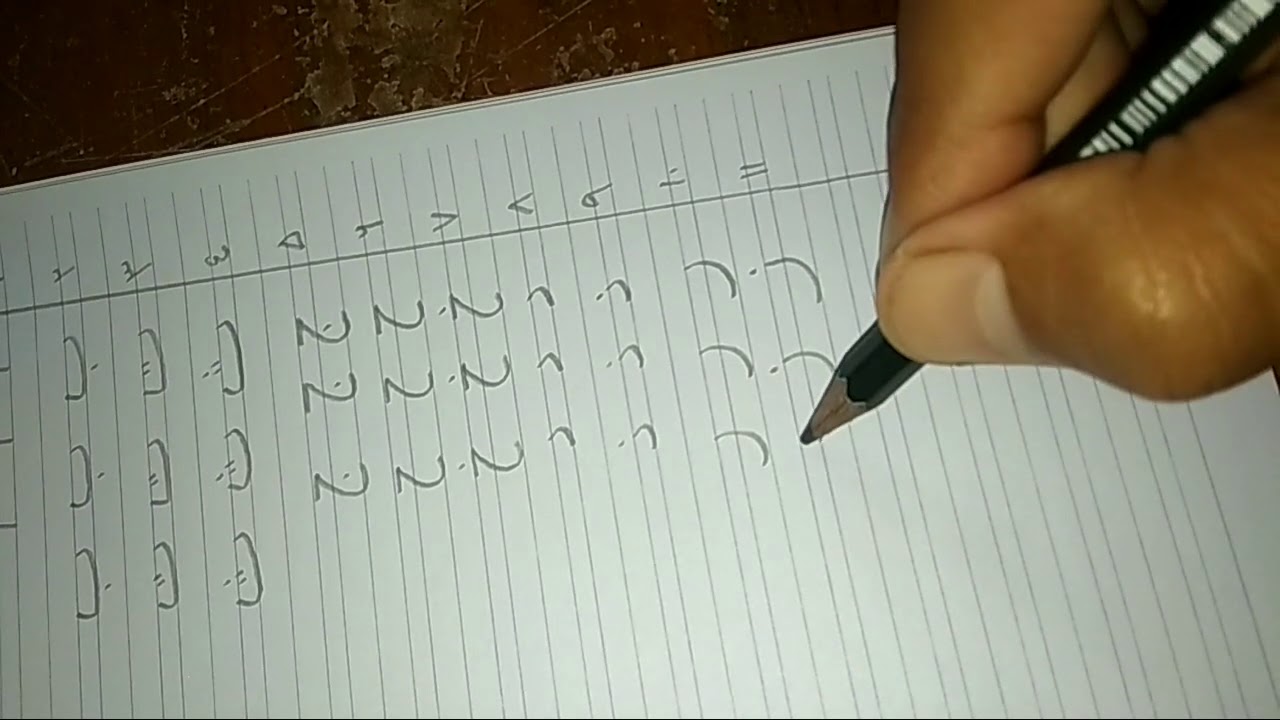 ١ ا ا ا
٢ ب ب ب
٣ ت ت ت
٤ ث ث ث
٥ ج ج ج
٦ ح ح ح
٧ خ خ خ
٨ د د د
٩ ذ ذ ذ
١٠ ر ر ر
١١ ز ز